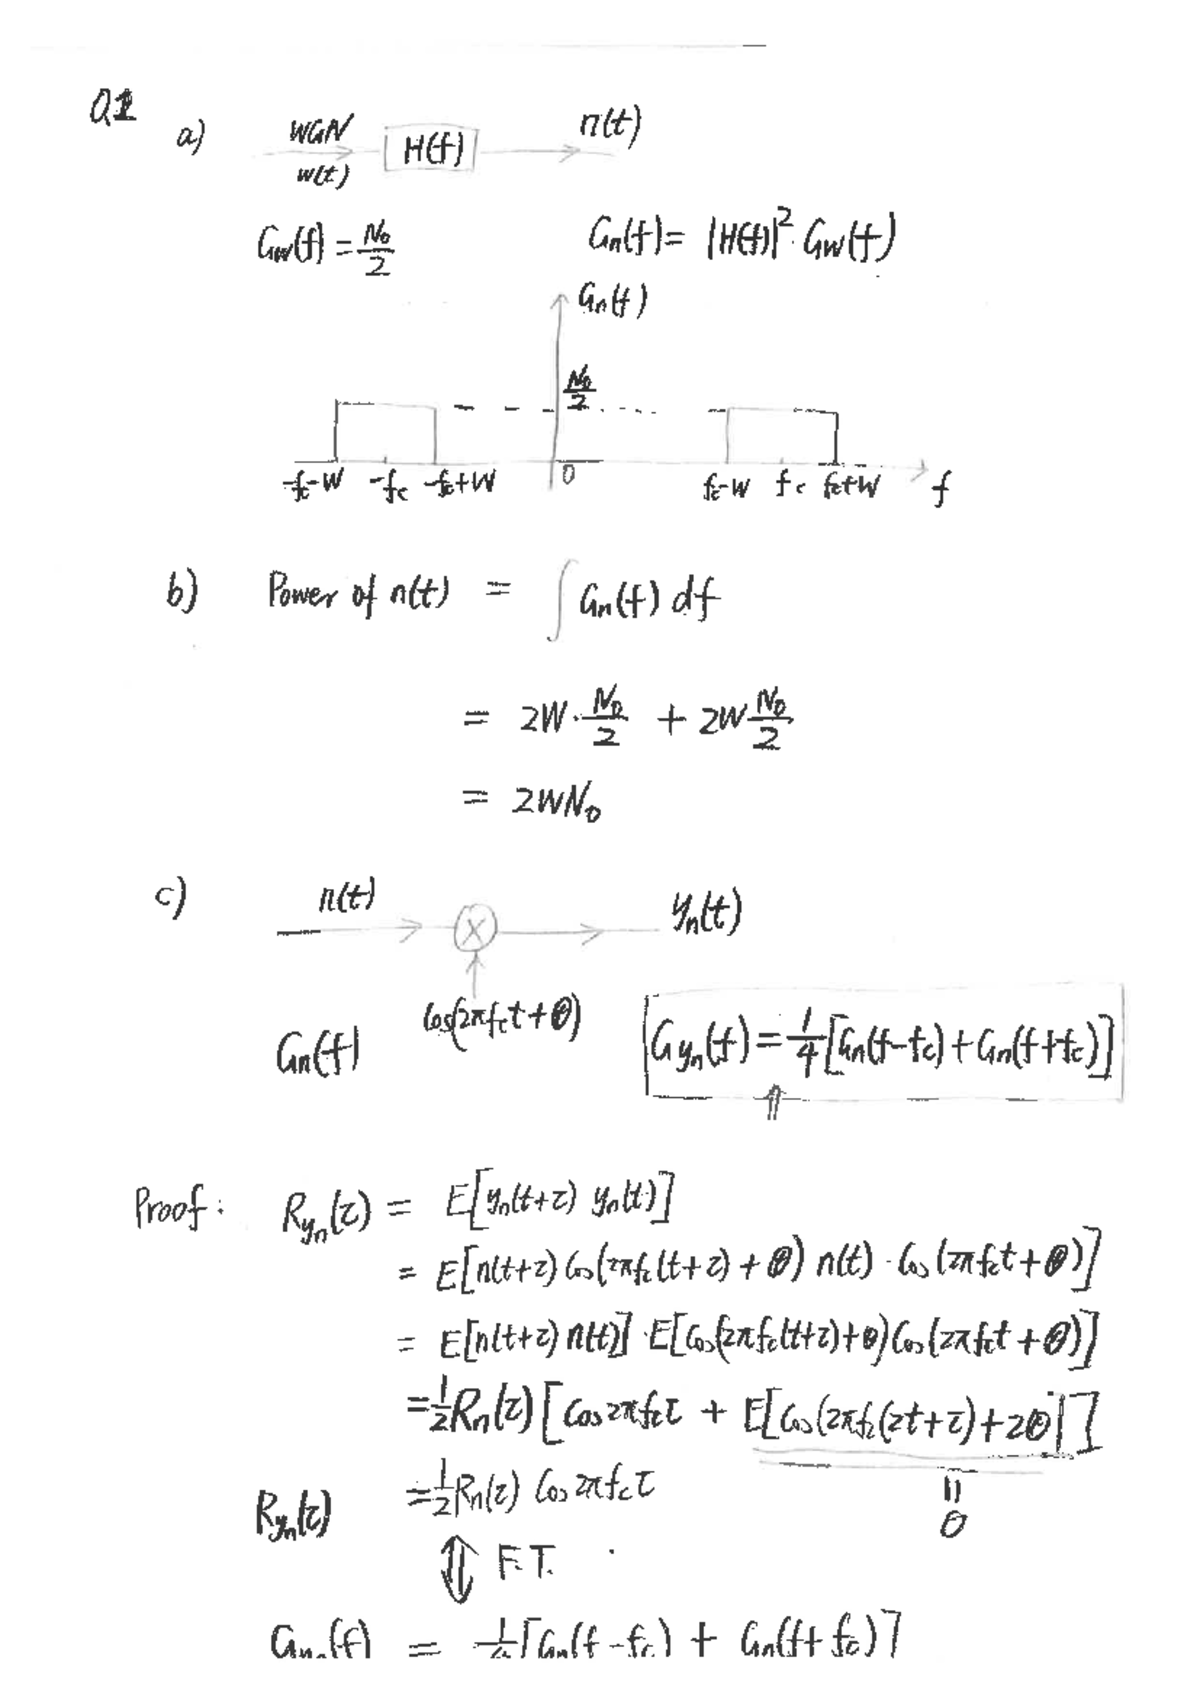 Q1
a) WGN w(t) H(f) n(t)
Gw(f) = N0/2 Gn(f) = |H(f)|² · Gw(f)
Gn(f)
N0/2
-fc-W -fc -fc+W 0 fc-W fc fc+W f
b) Power of n(t) = ∫ Gn(f) df
= 2W · N0/2 + 2W N0/2
= 2WN0
c) n(t) × yn(t)
Gn(f) Cos(2πfct+θ) Gyn(f) = 1/4 [Gn(f-fc) + Gn(f+fc)]
⇑
Proof: Ryn(τ) = E[yn(t+τ) yn(t)]
= E[n(t+τ) Cos(2πfc(t+τ)+θ) n(t) · Cos(2πfct+θ)]
= E[n(t+τ) n(t)] · E[Cos(2πfc(t+τ)+θ) Cos(2πfct+θ)]
= 1/2 Rn(τ) [Cos 2πfcτ + E[Cos(2πfc(2t+τ)+2θ]]
Ryn(τ) = 1/2 Rn(τ) Cos 2πfcτ
=
0
⇕ F.T.
Gyn(f) = 1/4 [Gn(f-fc) + Gn(f+fc)]